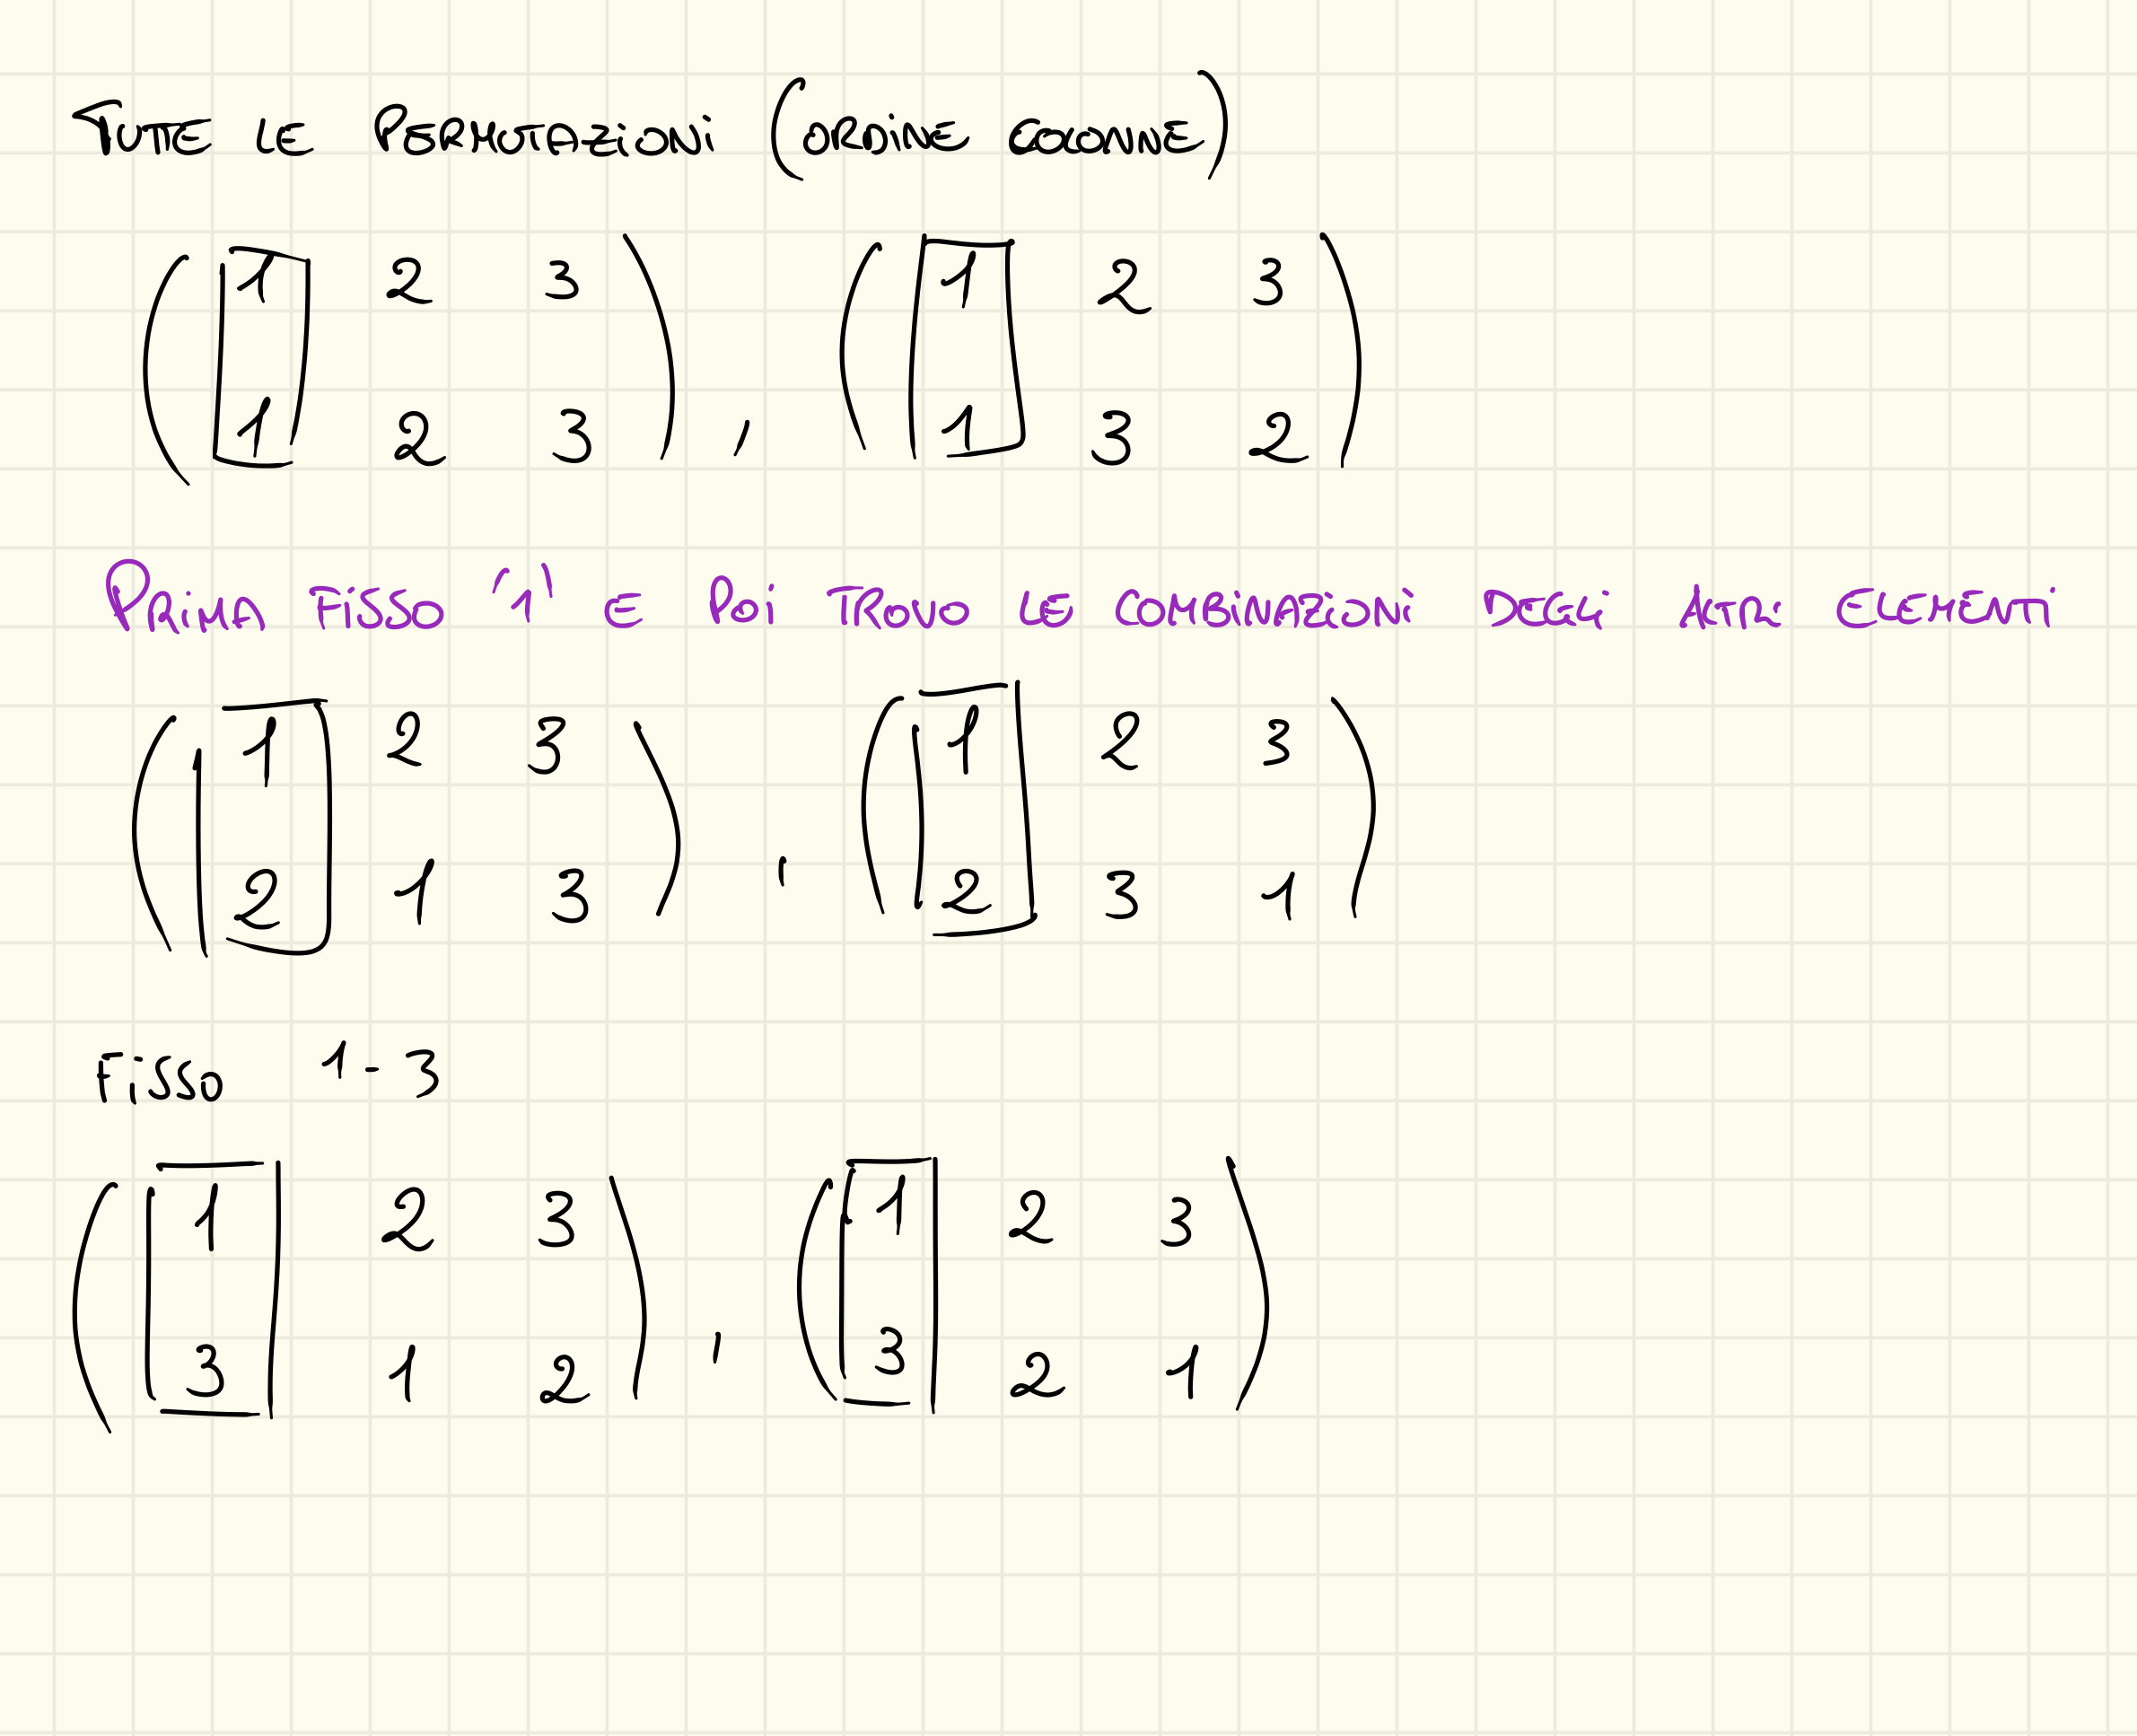 TUTTE LE PERMUTAZIONI (ORDINE
( 1 2 3 ) ( 1 2 3 )
( 1 2 3 ) , ( 1 3 2 )
PRIMA FISSO "1" E POI TROVO LE COMBINAZIONI DEGLI ALTRI ELEMENTI
( 1 2 3 ) ( 1 2 3 )
( 2 1 3 ) , ( 2 3 1 )
FISSO 1-3
( 1 2 3 ) ( 1 2 3 )
( 3 1 2 ) , ( 3 2 1 )